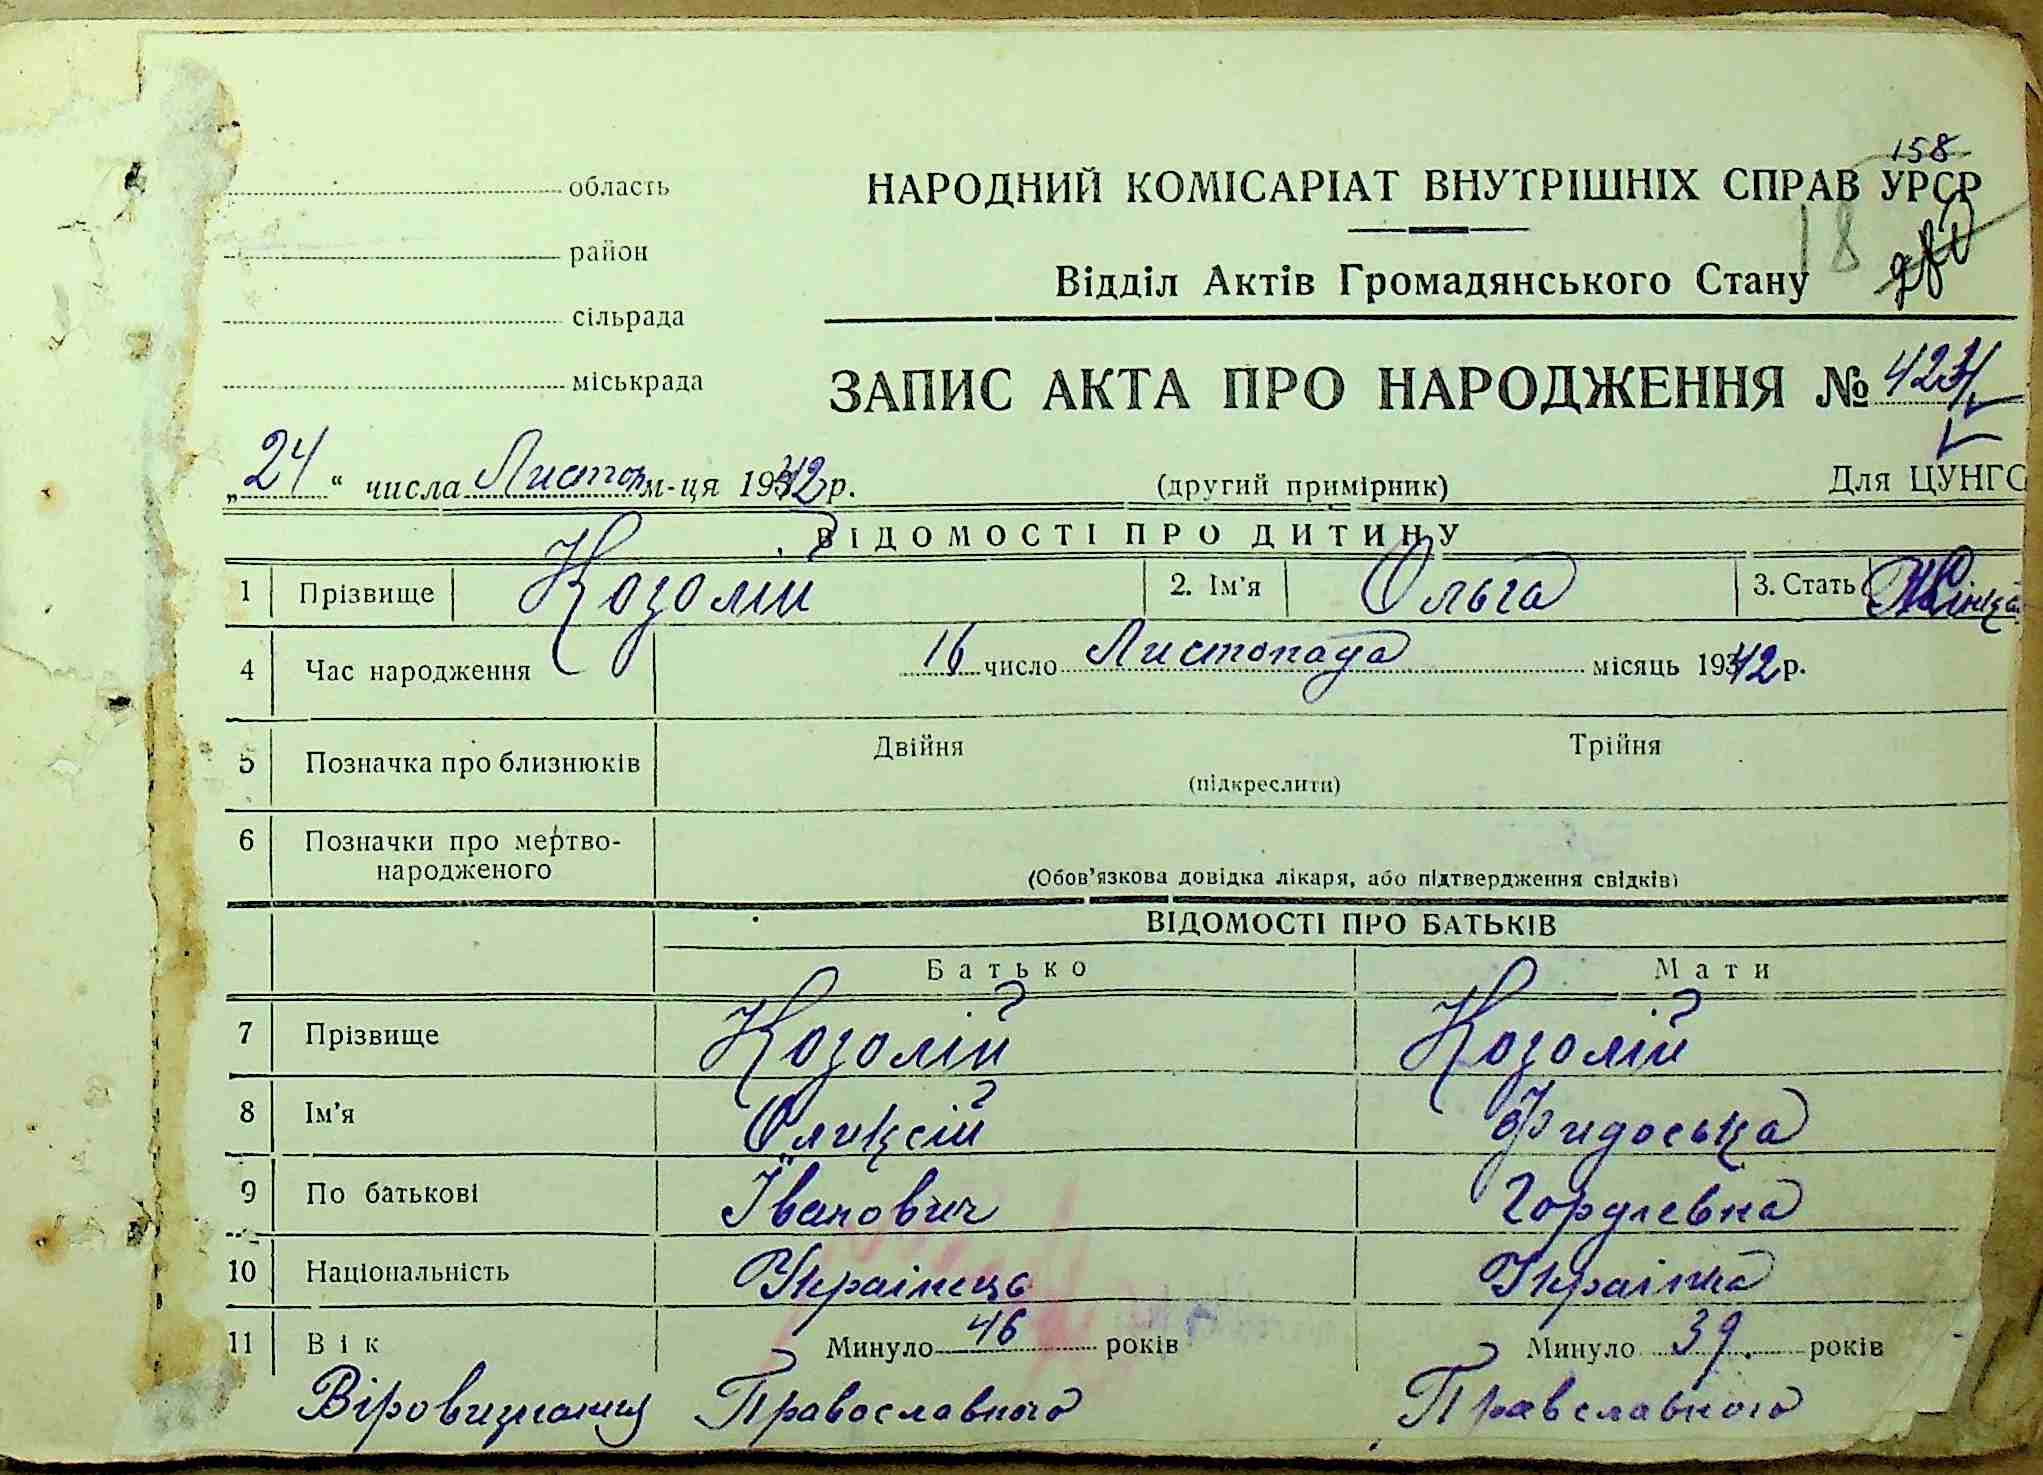 158
область НАРОДНИЙ КОМІСАРІАТ ВНУТРІШНІХ СПРАВ УРСР
18
район
Відділ Актів Громадянського Стану
сільрада
міськрада
ЗАПИС АКТА ПРО НАРОДЖЕННЯ №
„24“ числа Листоп м-ця 1942 р. (другий примірник) Для ЦУНГО
ВІДОМОСТІ ПРО ДИТИНУ
1 Прізвище Козолій 2. Ім'я Ольга 3. Стать Жіноча
4 Час народження 16 число Листопада місяць 1942 р.
5 Позначка про близнюків Двійня Трійня
(підкреслити)
6 Позначки про мертво-
народженого
(Обов'язкова довідка лікаря, або підтвердження свідків)
ВІДОМОСТІ ПРО БАТЬКІВ
Батько Мати
7 Прізвище Козолій Козолій
8 Ім'я Олексій Фидоська
9 По батькові Іванович
10 Національність Українець Українка
11 Вік Минуло 46 років Минуло 39 років
Православного Правславного